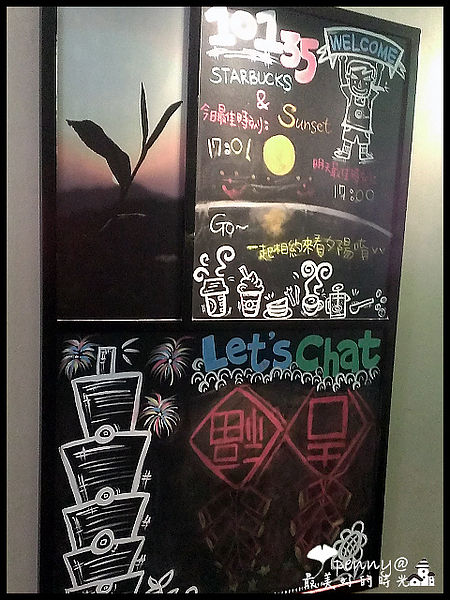 101 35
WELCOME
STARBUCKS
&
Sunset
今日最佳時刻:
17:01
17:00
Go~
一起相約來看夕陽唷~
Let's Chat
福
Penny@
最美好的時光